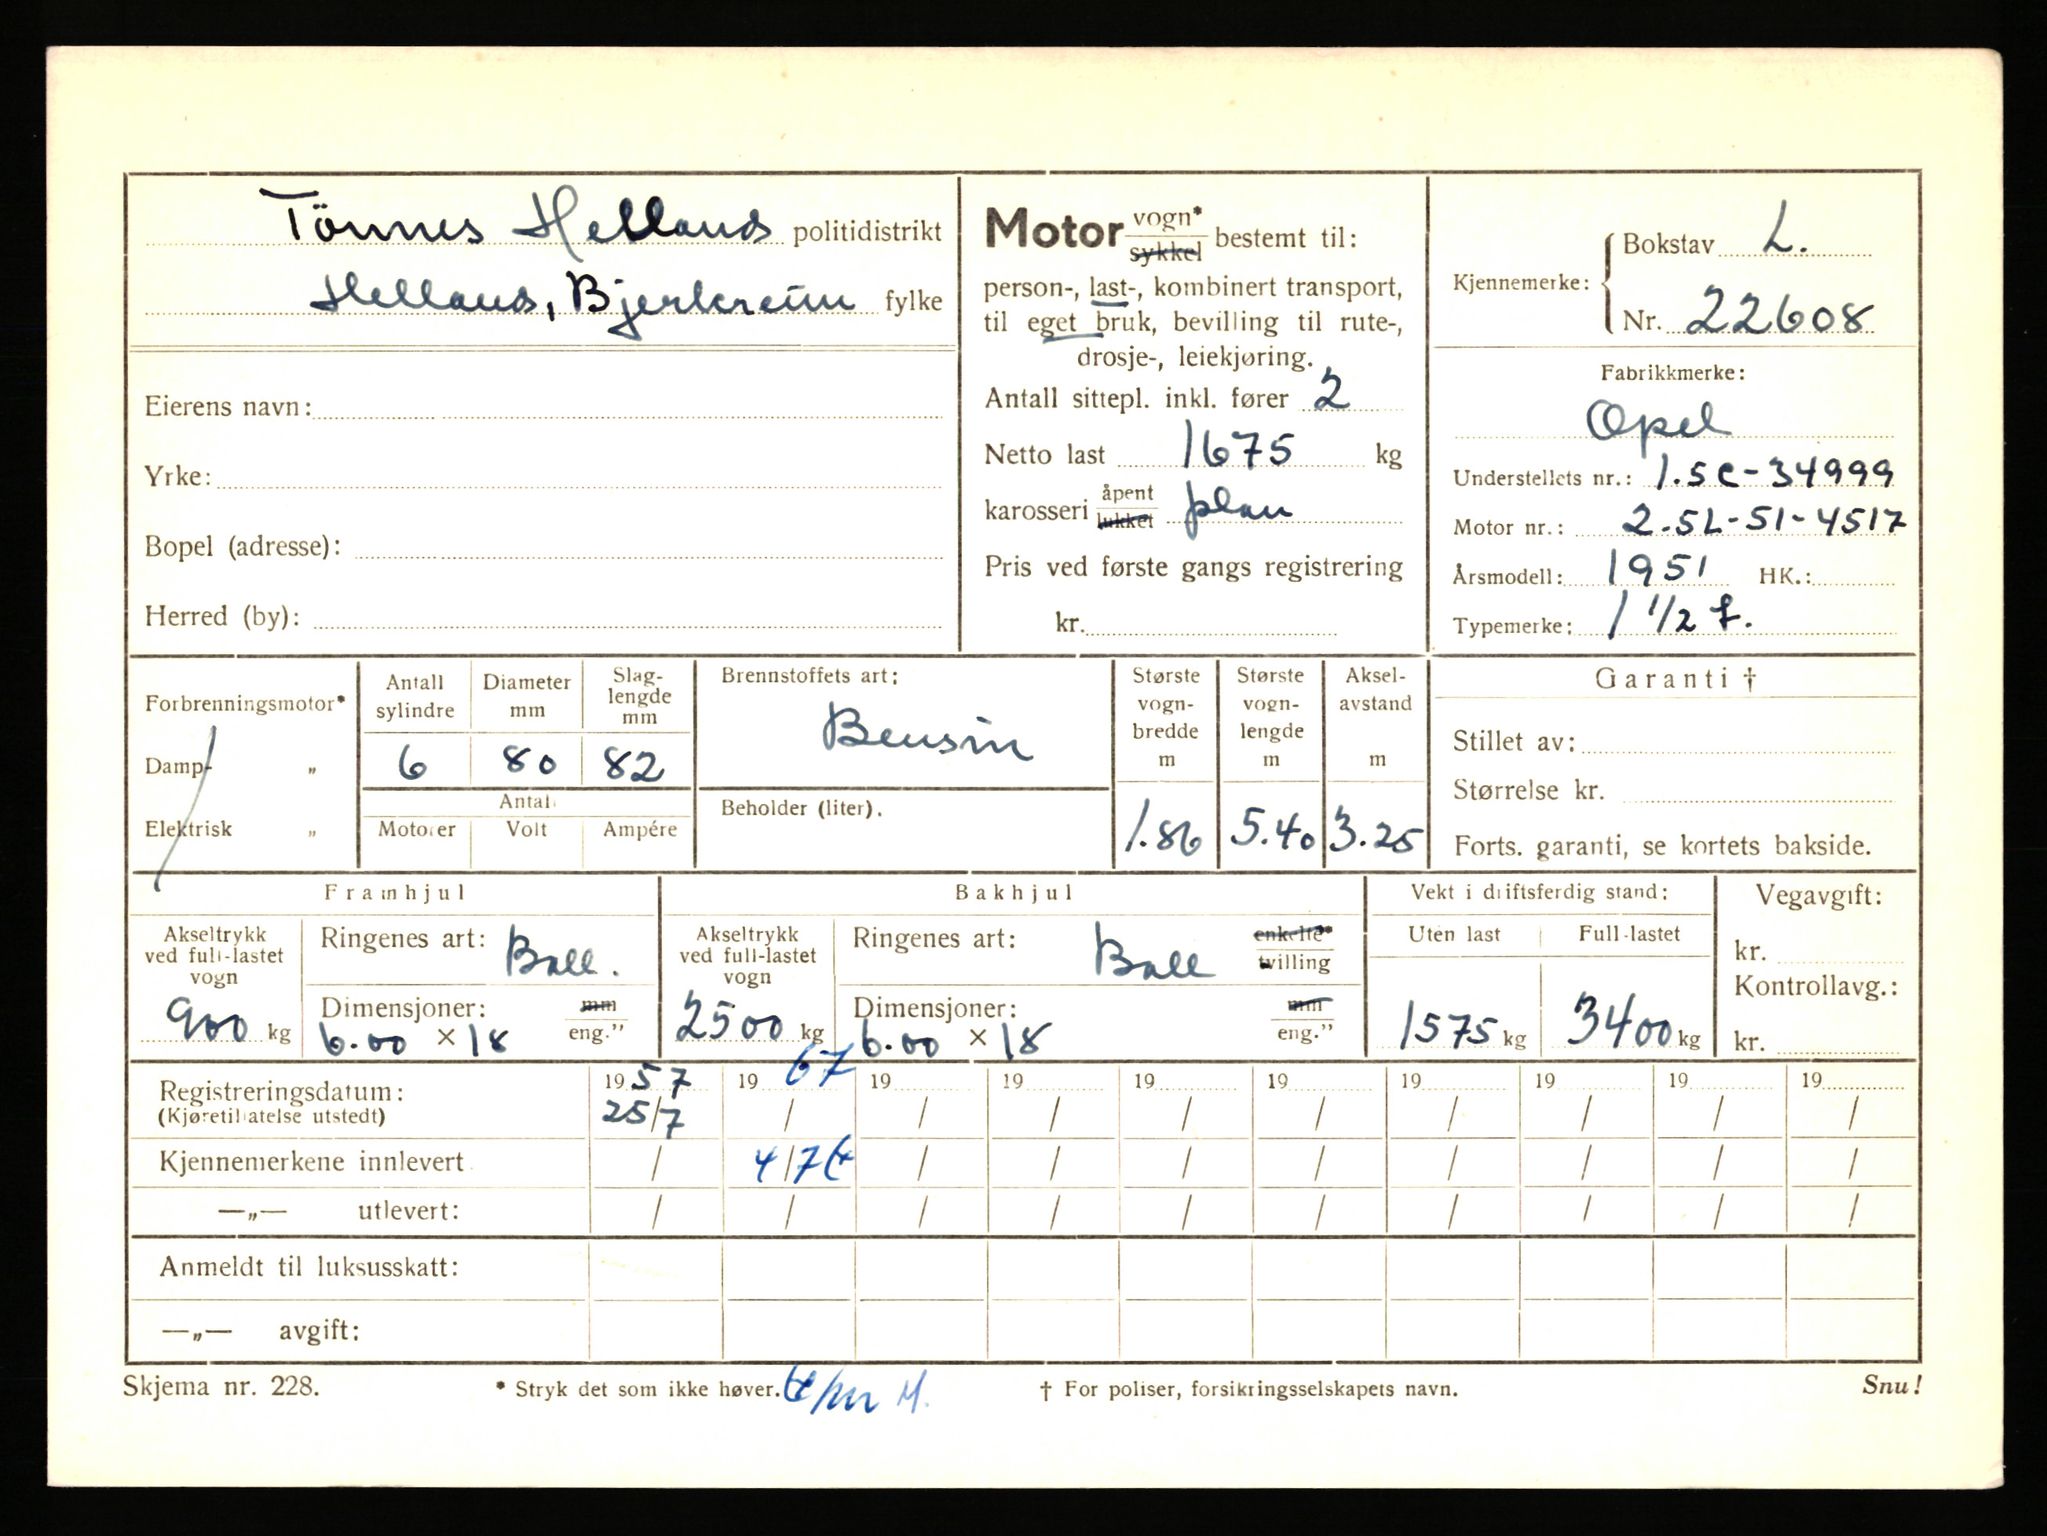 Tönnes Helland politidistrikt
Helland, Bjerkreim fylke
Eierens navn:
Yrke:
Bopel (adresse):
Herred (by):
Motor vogn* sykkel bestemt til:
person-, last-, kombinert transport,
til eget bruk, bevilling til rute-,
drosje-, leiekjøring.
Antall sittepl. inkl. fører 2
Netto last 1675 kg
karosseri åpent lukket plan
Pris ved første gangs registrering
kr.
Kjennemerke: Bokstav L.
Nr. 22608
Fabrikkmerke:
Opel
Understellets nr.: 1.5C-34999
Motor nr.: 2.5L-51-4517
Årsmodell: 1951 HK.:
Typemerke: 1 1/2 t.
Forbrenningsmotor*
Damp- „
Elektrisk „
Antall sylindre
Diameter mm
Slag-lengde mm
6 80 82
Antall
Motorer Volt Ampére
Brennstoffets art:
Bensin
Beholder (liter).
Største vogn-bredde m
Største vogn-lengde m
Aksel-avstand m
1.86 5.40 3.25
Garanti †
Stillet av:
Størrelse kr.
Forts. garanti, se kortets bakside.
Framhjul
Akseltrykk
ved full-lastet
vogn
900 kg
Ringenes art: Ball.
Dimensjoner: mm
6.00 × 18 eng."
Bakhjul
Akseltrykk
ved full-lastet
vogn
2500 kg
Ringenes art: Ball enkelte* tvilling
Dimensjoner: mm
6.00 × 18 eng."
Vekt i driftsferdig stand:
Uten last Full-lastet
1575 kg 3400 kg
Vegavgift:
kr.
Kontrollavg.:
kr.
Registreringsdatum: 19 57 19 67 19 19 19 19 19 19 19 19
(Kjøretillatelse utstedt) 25/7 / / / / / / / / /
Kjennemerkene innlevert / 4/7 / / / / / / / /
—„— utlevert: / / / / / / / / / /
Anmeldt til luksusskatt:
—„— avgift:
Skjema nr. 228.
* Stryk det som ikke høver.
† For poliser, forsikringsselskapets navn.
Snu!